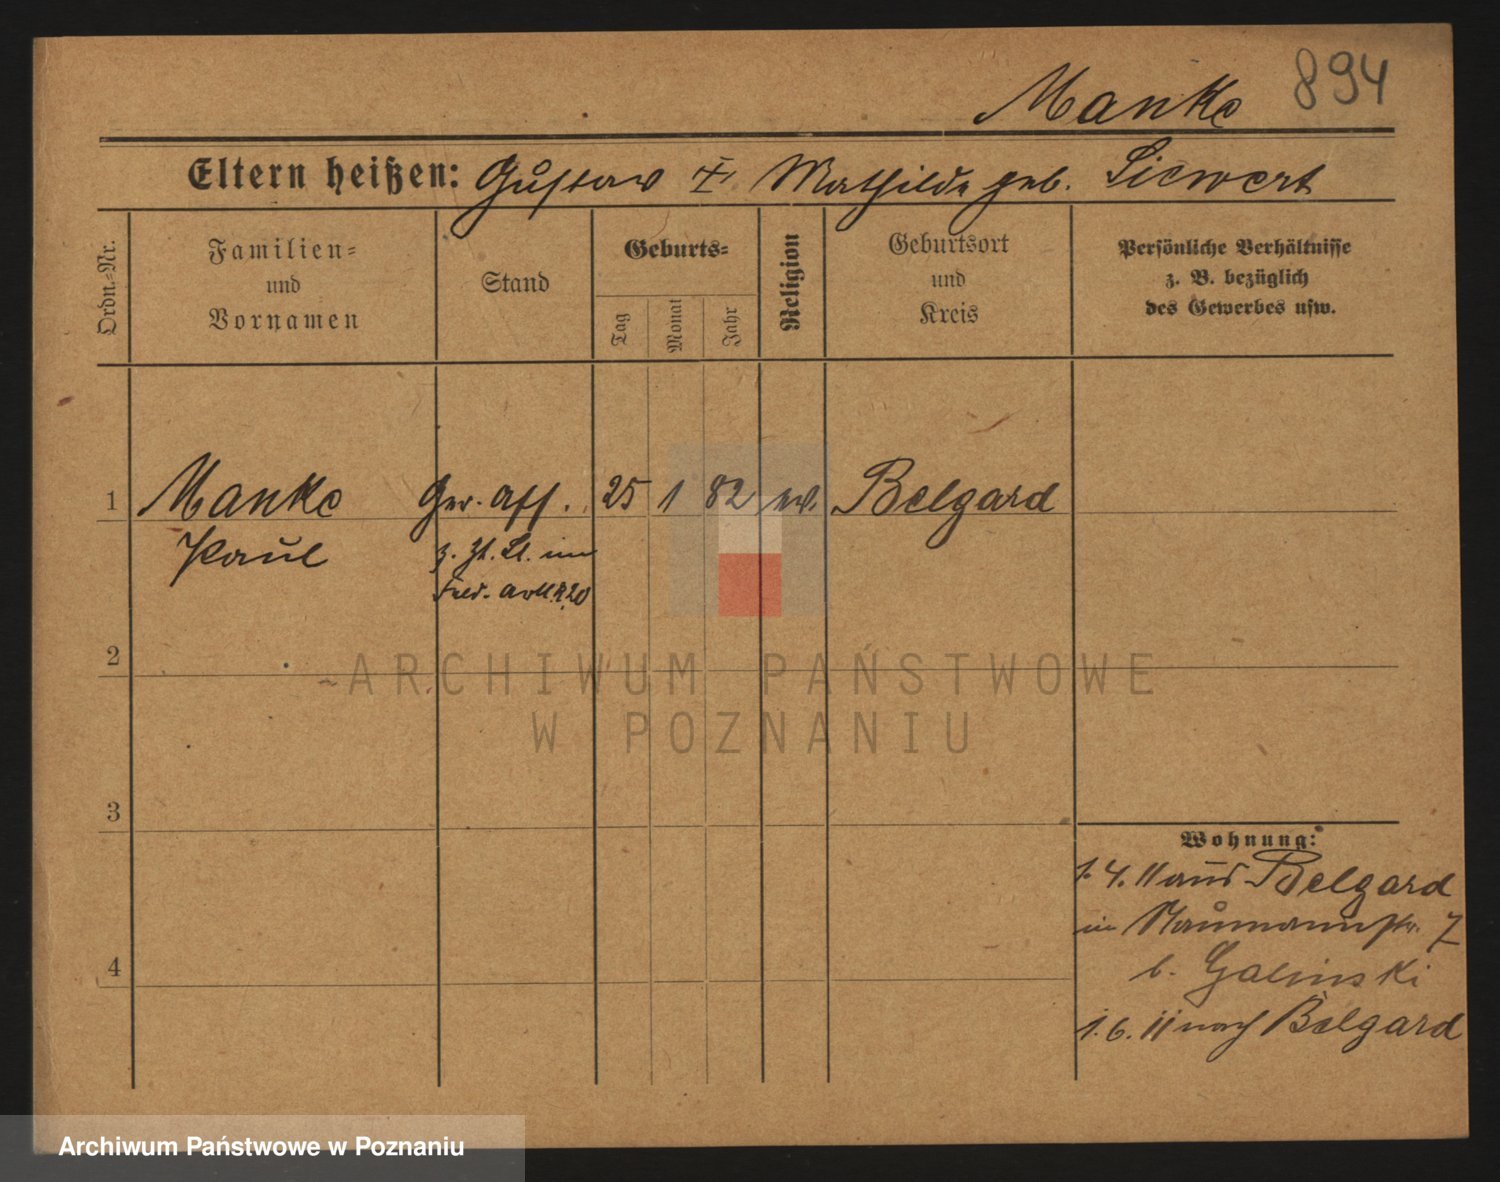 894
Manke
Eltern heißen: Gustav Mathilde geb. Siewert
Ordn.-Nr.
Familien- und Vornamen
Stand
Geburts-
Tag
Monat
Jahr
Religion
Geburtsort und Kreis
Persönliche Verhältnisse
z. B. bezüglich
des Gewerbes usw.
1 Manke Ger. Ass. 25 1 82 ev. Belgard
Paul z. Zt. Lt. im
Feld. R. 20
2
ARCHIWUM PAŃSTWOWE
W POZNANIU
3
Wohnung:
1. 4. 11 aus Belgard
in Naumannstr. 7
b. Galinski
1. 6. 11 nach Belgard
4
Archiwum Państwowe w Poznaniu